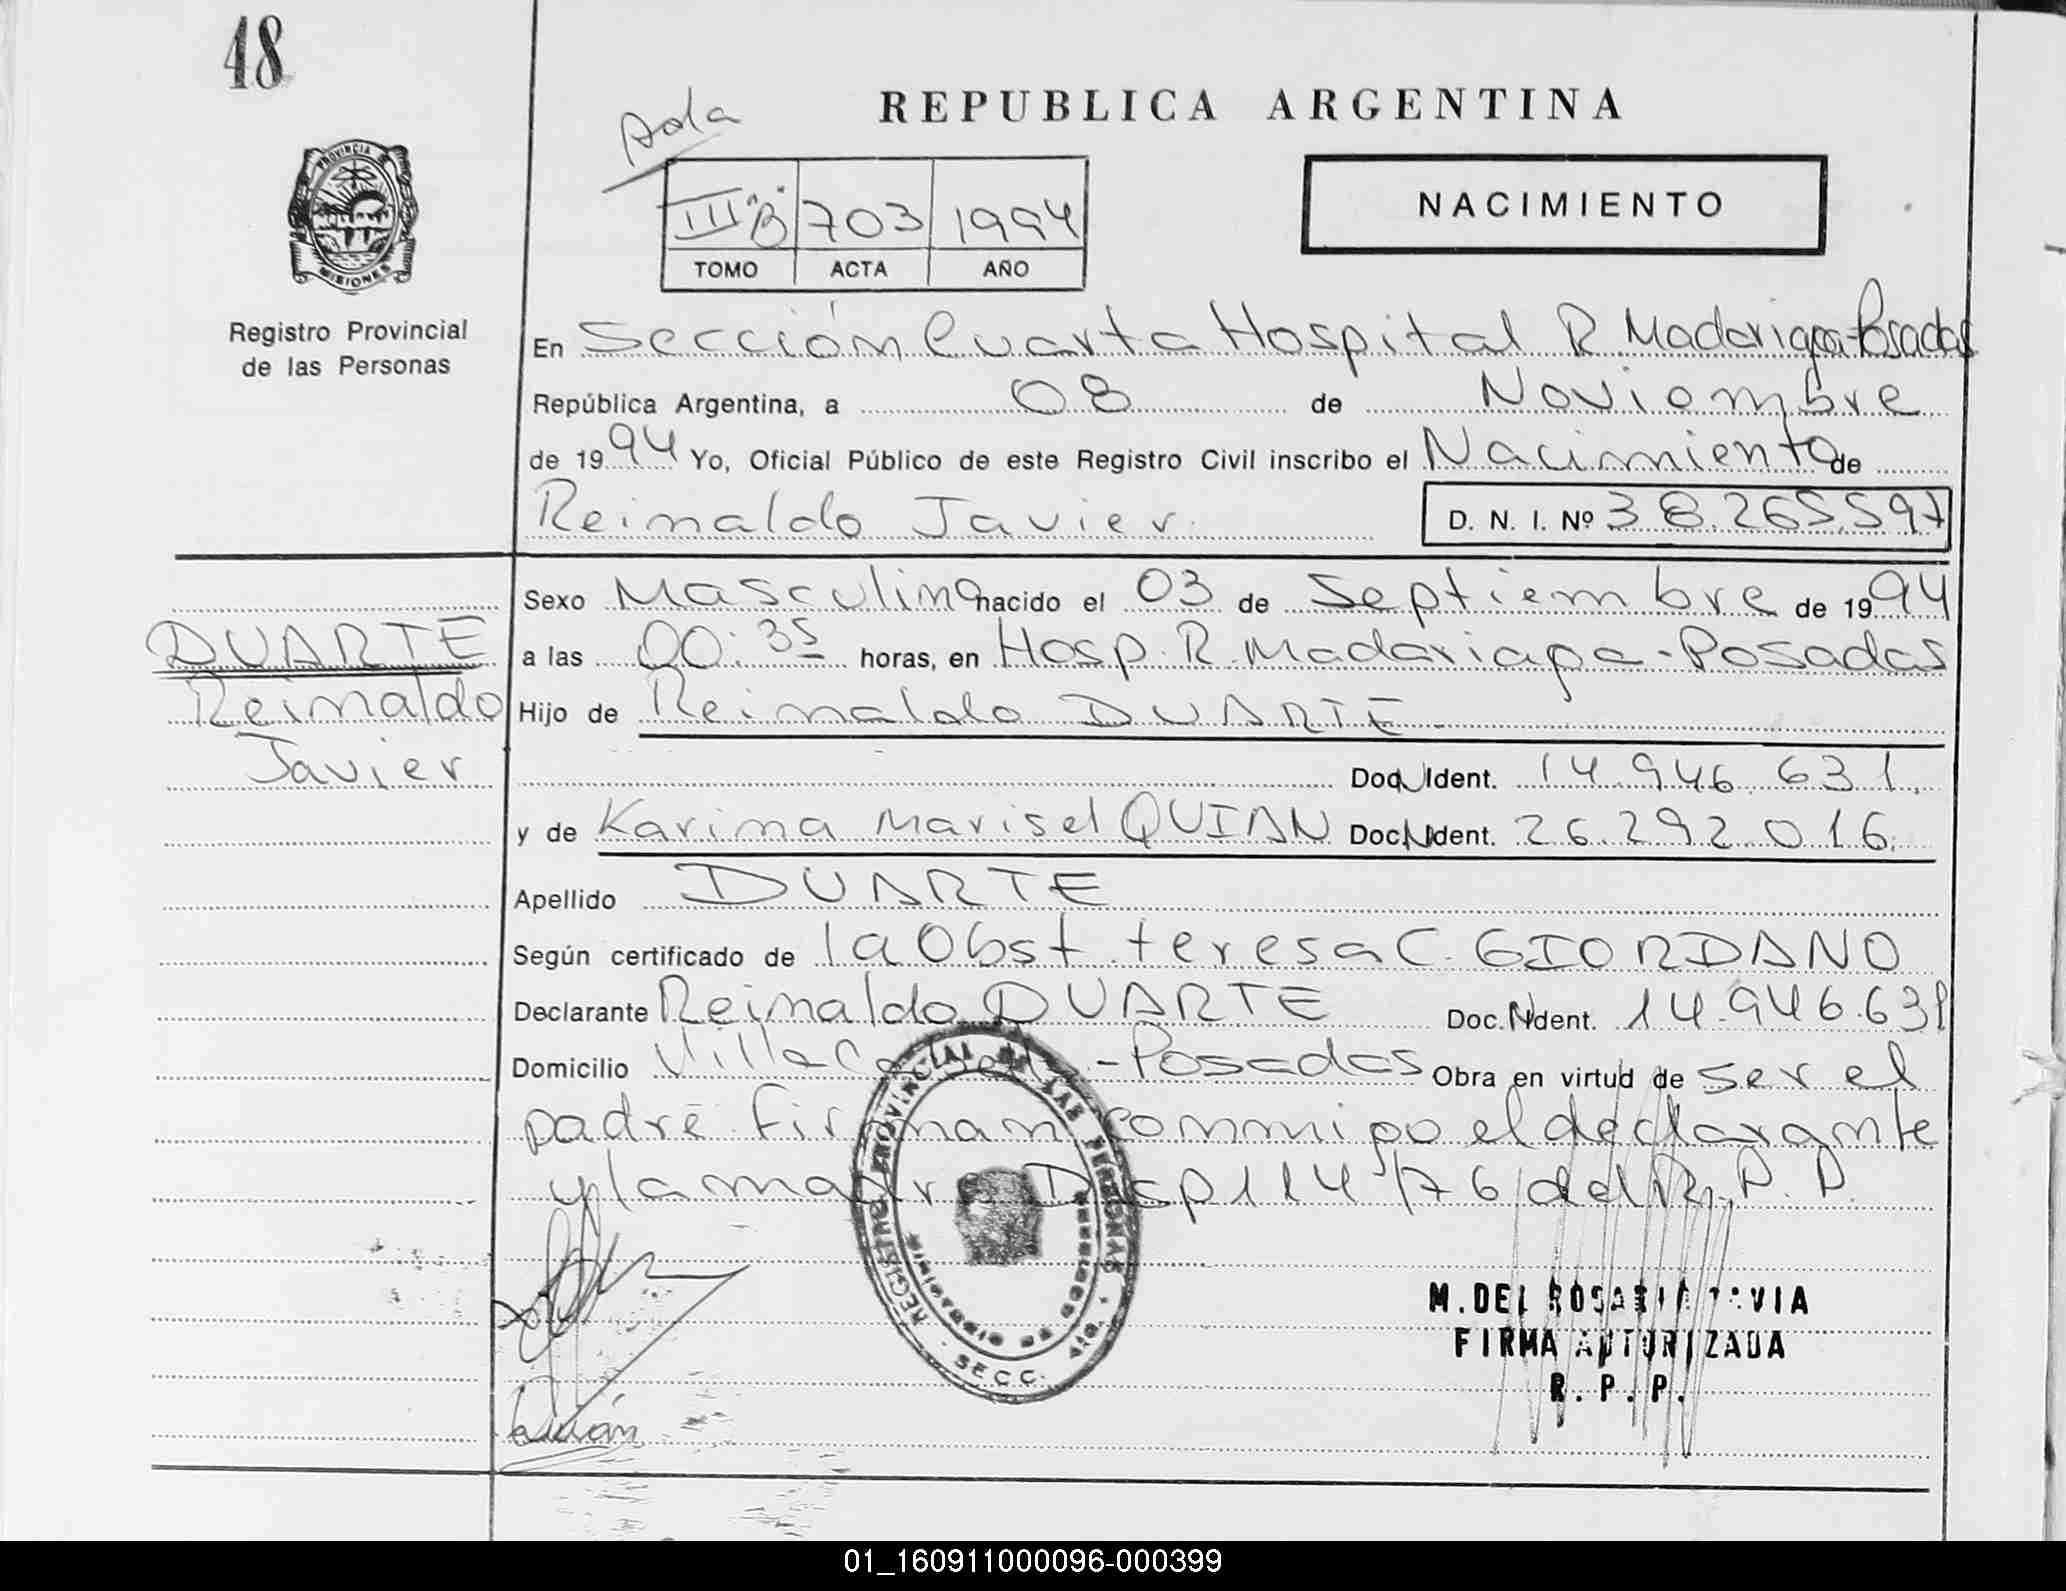 48
Ada
REPUBLICA ARGENTINA
PROVINCIA
MISIONES
III "B" 703 1994
TOMO ACTA AÑO
NACIMIENTO
Registro Provincial
de las Personas
En Sección Cuarta Hospital R Madariaga-Posadas
República Argentina, a 08 de Noviembre
de 1994 Yo, Oficial Público de este Registro Civil inscribo el Nacimiento de
Reinaldo Javier. D. N. I. Nº 38.265.597
Sexo Masculino nacido el 03 de Septiembre de 1994
DUARTE
a las 00:35 horas, en Hosp. R. Madariaga-Posadas
Reinaldo
Hijo de Reinaldo DUARTE-
Javier
Doc N Ident. 14.946.631.
y de Karina Marisel QUIAN Doc N Ident. 26.292.016.
Apellido DUARTE
Según certificado de la Obst. teresa C. GIORDANO
Declarante Reinaldo DUARTE Doc. N Ident. 14.946.631
Domicilio Villa -Posadas Obra en virtud de ser el
padre. Firman conmigo el declarante
y la madre Disp 114/76 del R.P.P.
REGISTRO PROVINCIAL DE LAS PERSONAS
SECC.
M. DEL ROSARIO
FIRMA AUTORIZADA
R. P. P.
Quián
01_160911000096-000399